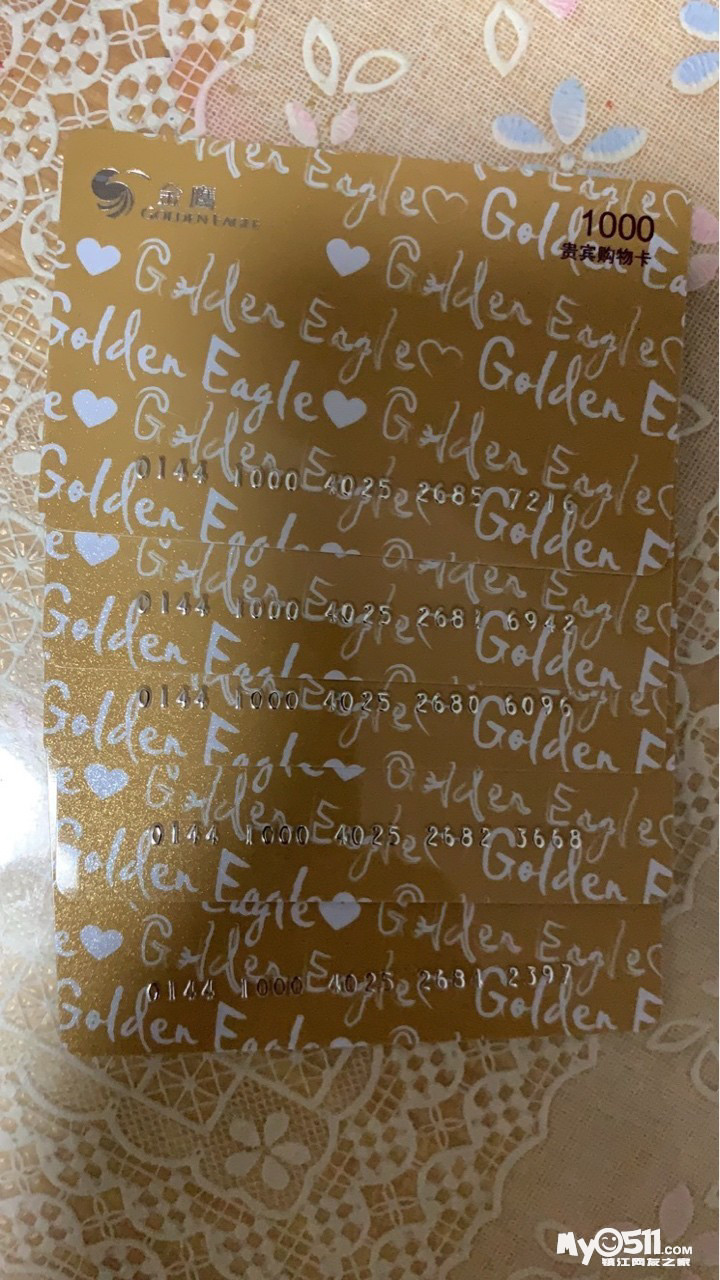 金鹰
GOLDEN EAGLE
1000
贵宾购物卡
Golden Eagle
Golden Eagle
Golden Eagle
Golden Eagle
0144 1000 4025 2685 7216
Golden Eagle
0144 1000 4025 2681 6942
Golden Eagle
0144 1000 4025 2680 6096
Golden Eagle
0144 1000 4025 2682 3668
Golden Eagle
0144 1000 4025 2681 2397
Golden Eagle
My0511.COM
镇江网友之家